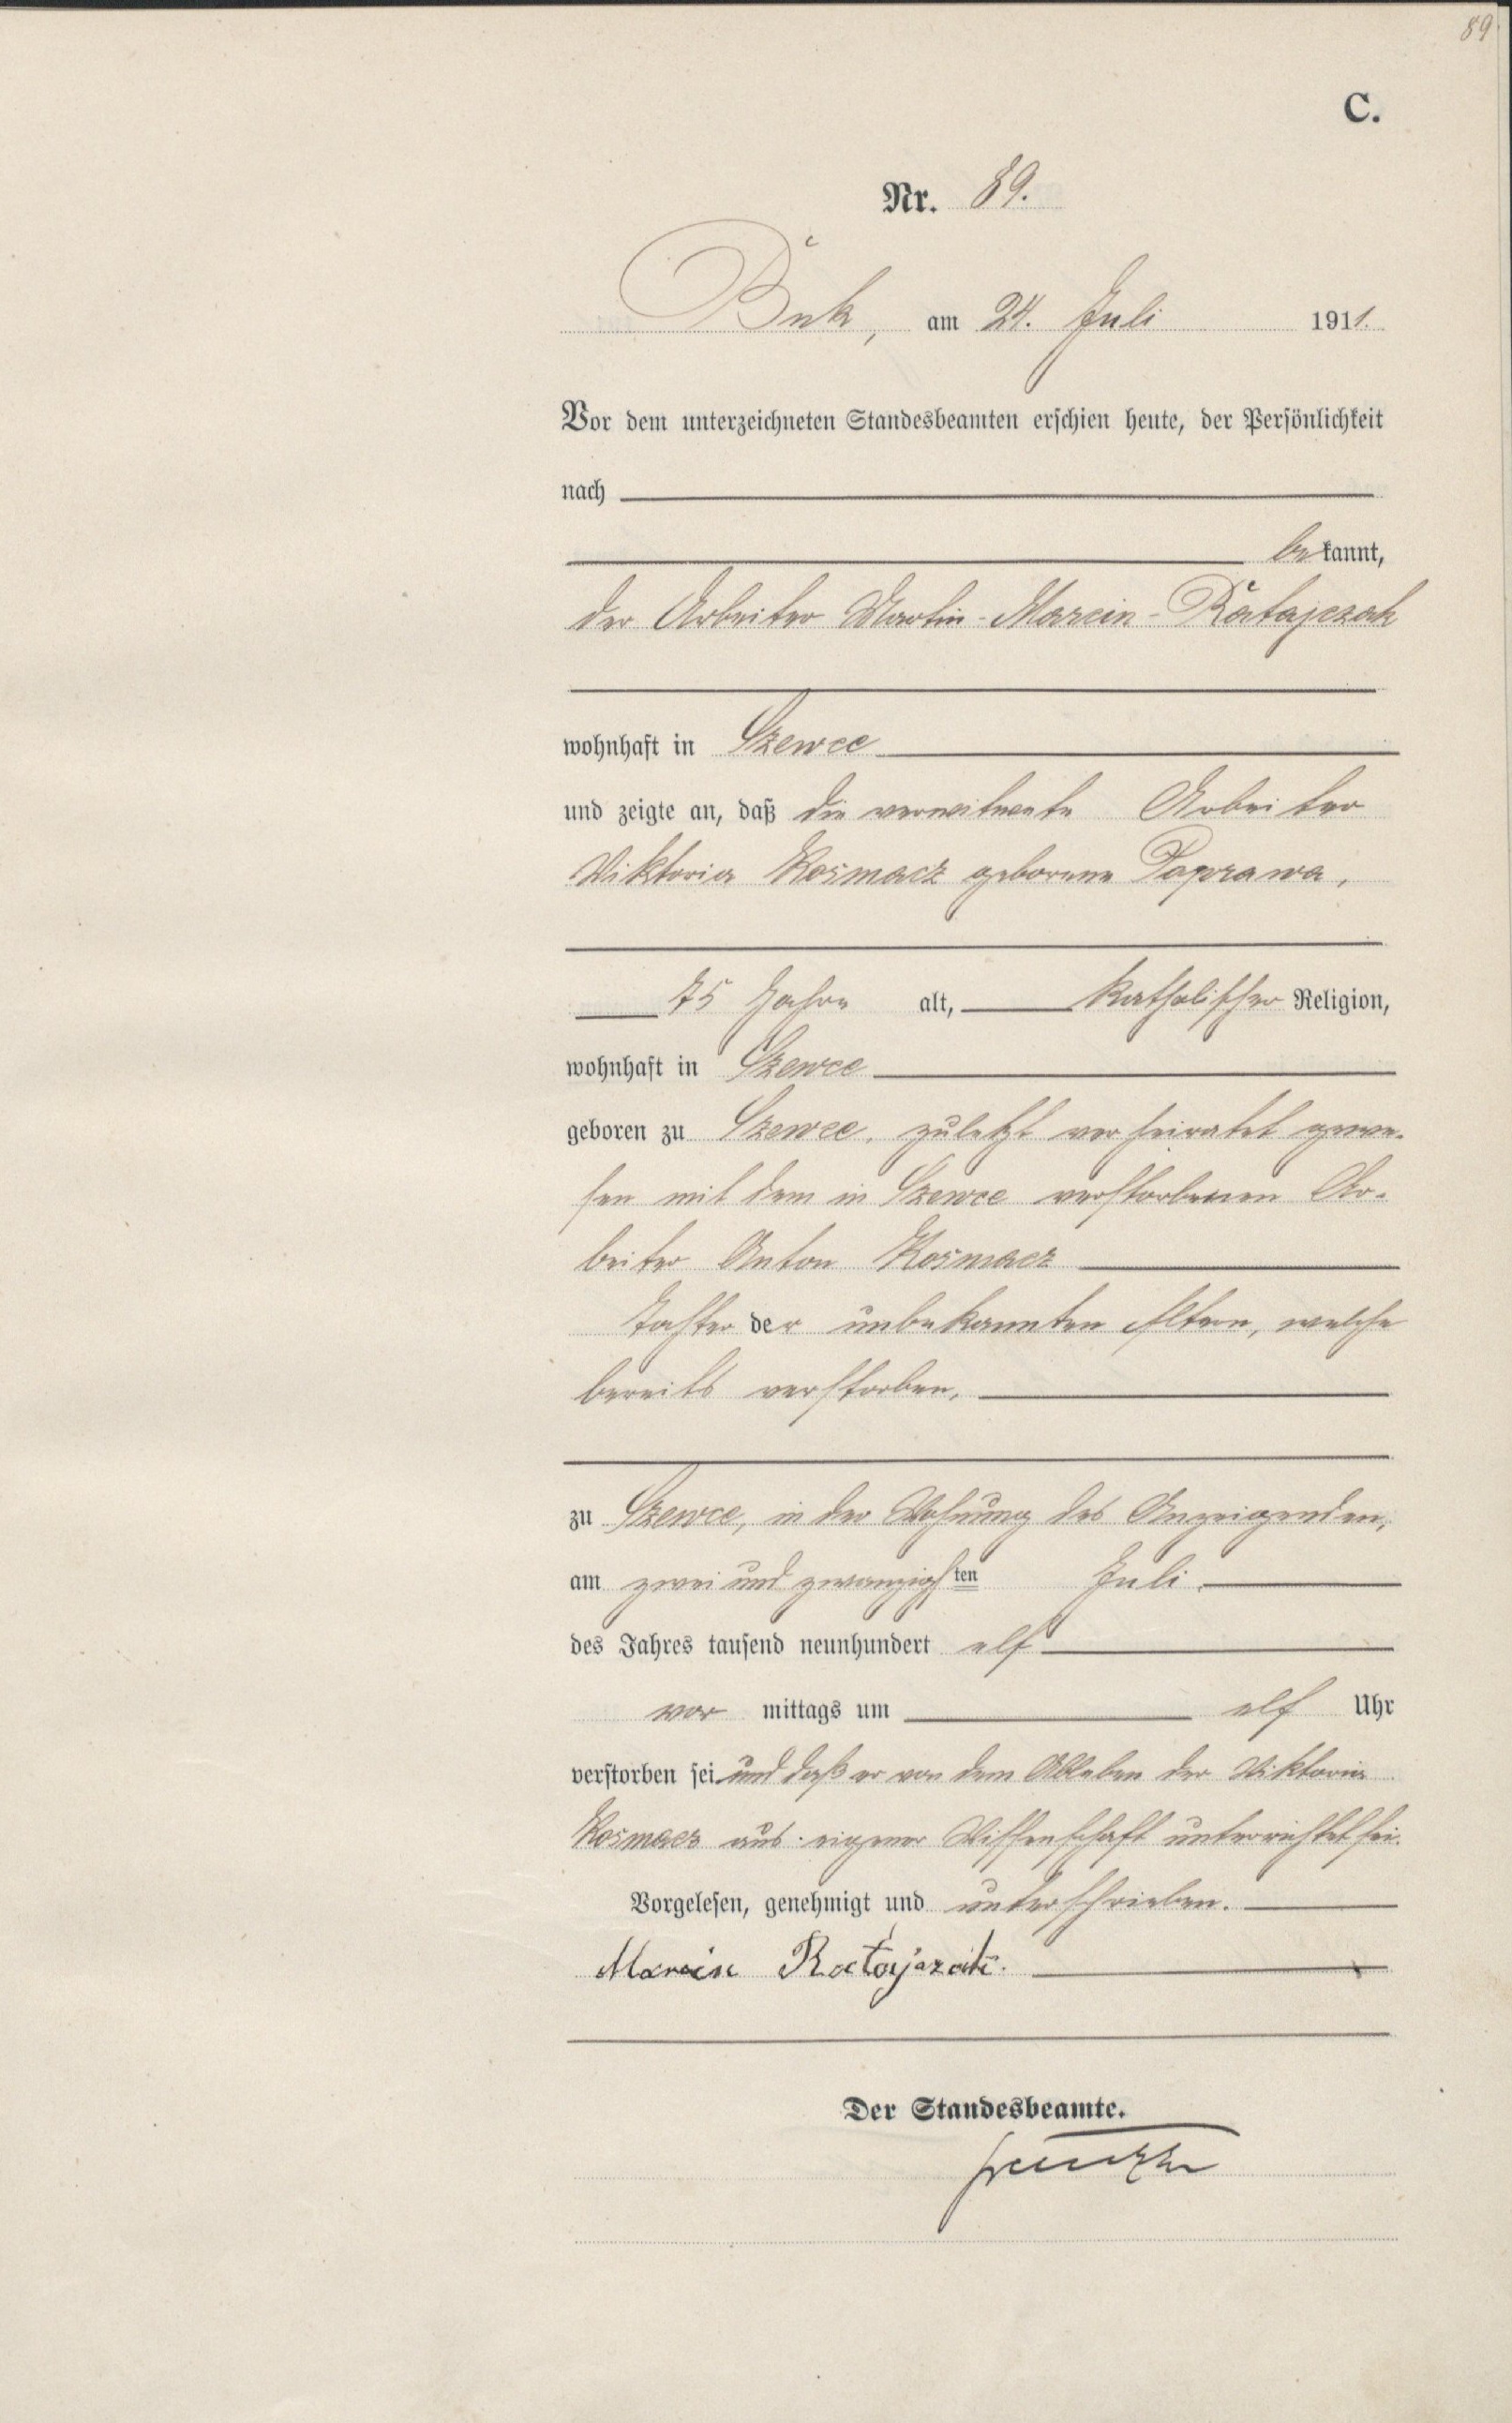 89
C.
Nr. 89.
Buk, am 24. Juli 1911.
Vor dem unterzeichneten Standesbeamten erschien heute, der Persönlichkeit
nach
bekannt,
der Arbeiter Martin - Marcin - Ratajczak
wohnhaft in Szewce
und zeigte an, daß die verwitwete Arbeiter
Viktoria Kosmacz geborene Poprawa,
75 Jahre alt, katholischer Religion,
wohnhaft in Szewce
geboren zu Szewce, zuletzt verheiratet gewe-
sen mit dem in Szewce verstorbenen Ar-
beiter Anton Kosmacz
Tochter der unbekannten Eltern, welche
bereits verstorben,
zu Szewce, in der Wohnung des Anzeigenden,
am zwei und zwanzigsten Juli
des Jahres tausend neunhundert elf
vor mittags um elf Uhr
verstorben sei und daß er von dem Ableben der Viktoria
Kosmacz aus eigener Wissenschaft unterrichtet sei.
Vorgelesen, genehmigt und unterschrieben.
Marcin Ratajczak.
Der Standesbeamte.